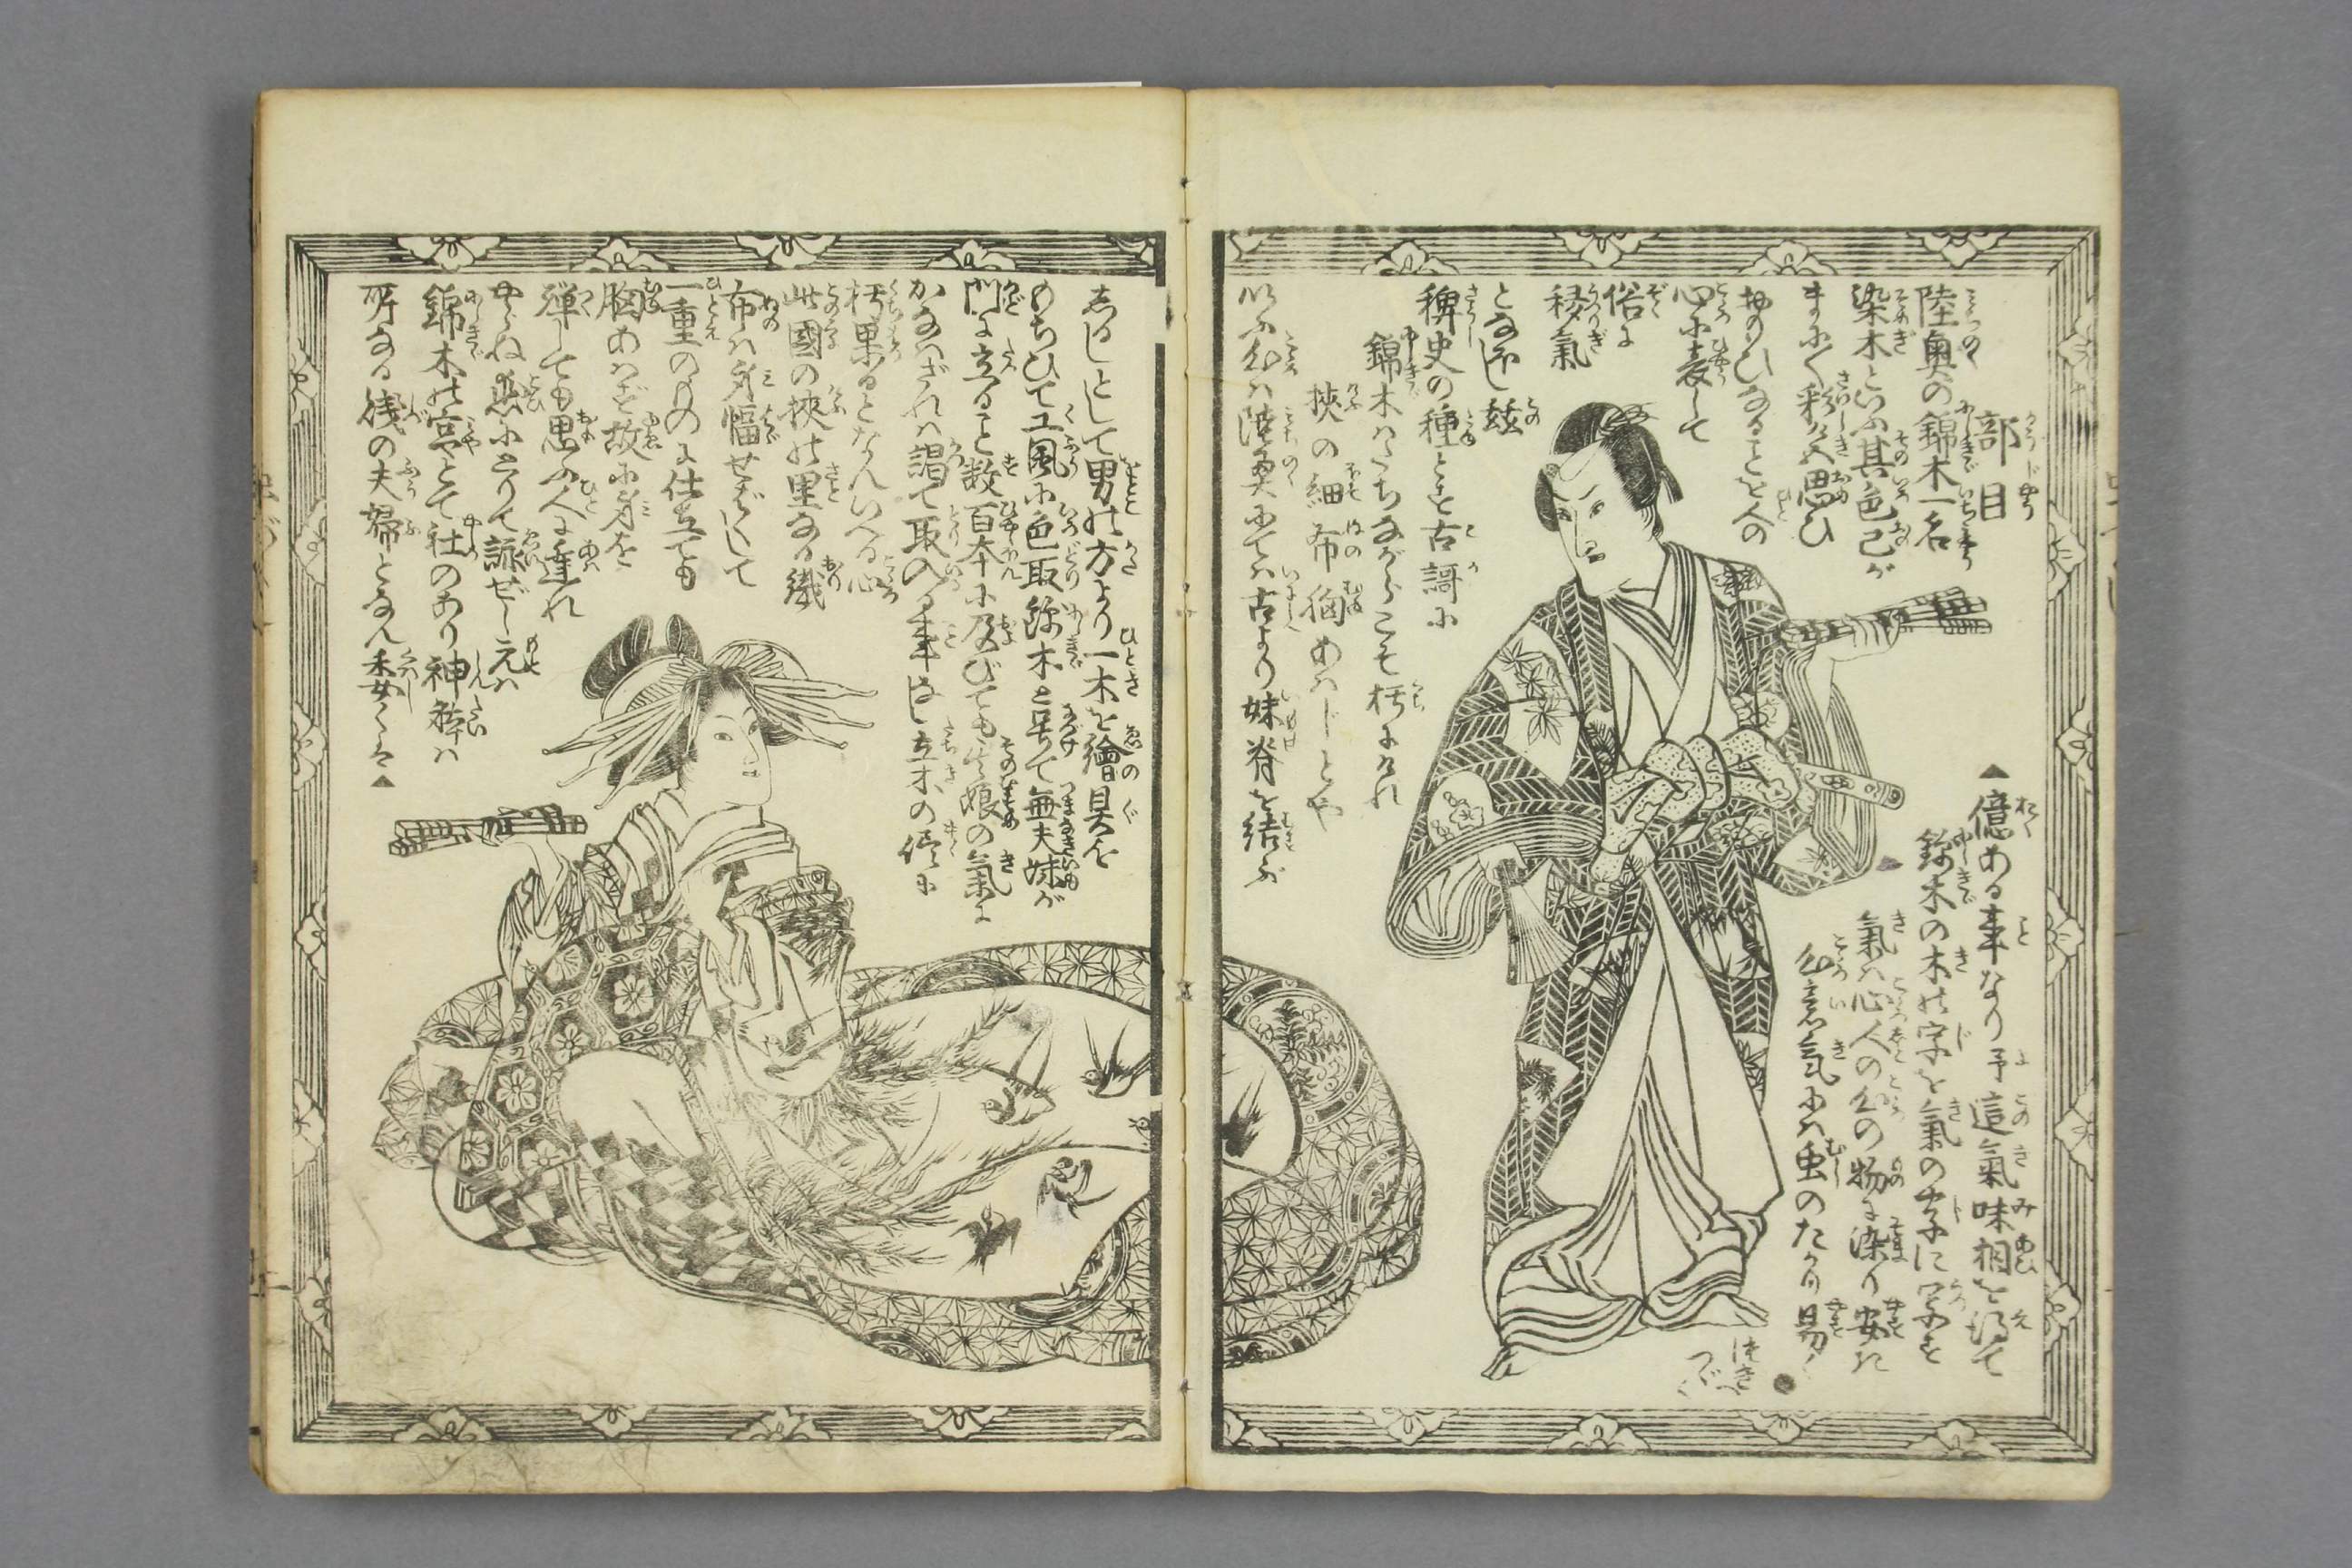 部目
陸奥の錦木一名
染木といふ其色己が
まに〳〵彩しき思ひ
おのひなることを人の
心に表して
俗に
移氣
となふし茲
稗史の種とせと古謌に
錦木はたちながらこそ朽にけれ
狹の細布胸あはじとや
いふ心は陸奥にては古より妹脊を結ぶ
しるしとして男の方より一木を繪具を
もちひて工風に色取錦木と号て無夫妹が
門に立ること数百本に及びても其娘の氣に
かなはざれば謁て取入る事なし立木の侭に
朽果るとなんいへる心
此國の狹の里なる織
布は身幅せばくして
一重のものに仕立ても
胸あはざる故に身を
弾しても思ふ人に逢れ
やらね戀によりて詠ぜし元は
錦木の宮やとて社のあり神躰は
所なる賤の夫婦となん委くは▲
▲億ある事なり予這氣味相を得て
錦木の木の字を氣の字に写せ
氣は心人の心の物に染り安た
心意氣には虫のたかり易く
つぎへ
つゞく